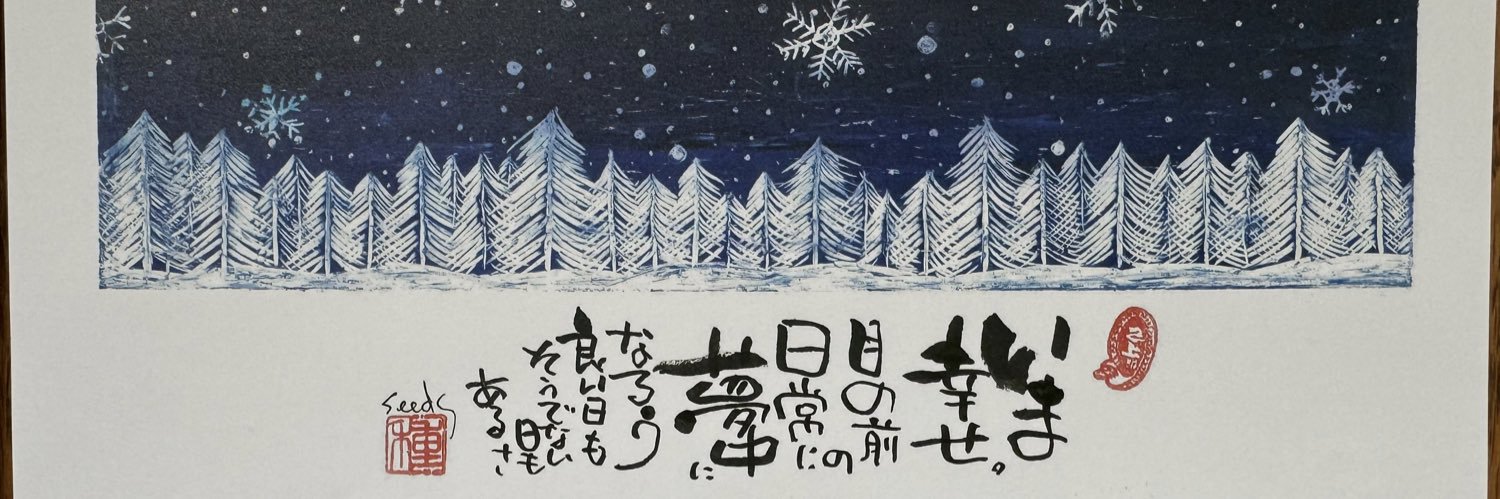 いま
幸せ。
目の前の
日常に
夢中に
なろう
良い日も
そうでない
日も
あるさ
seeds
種